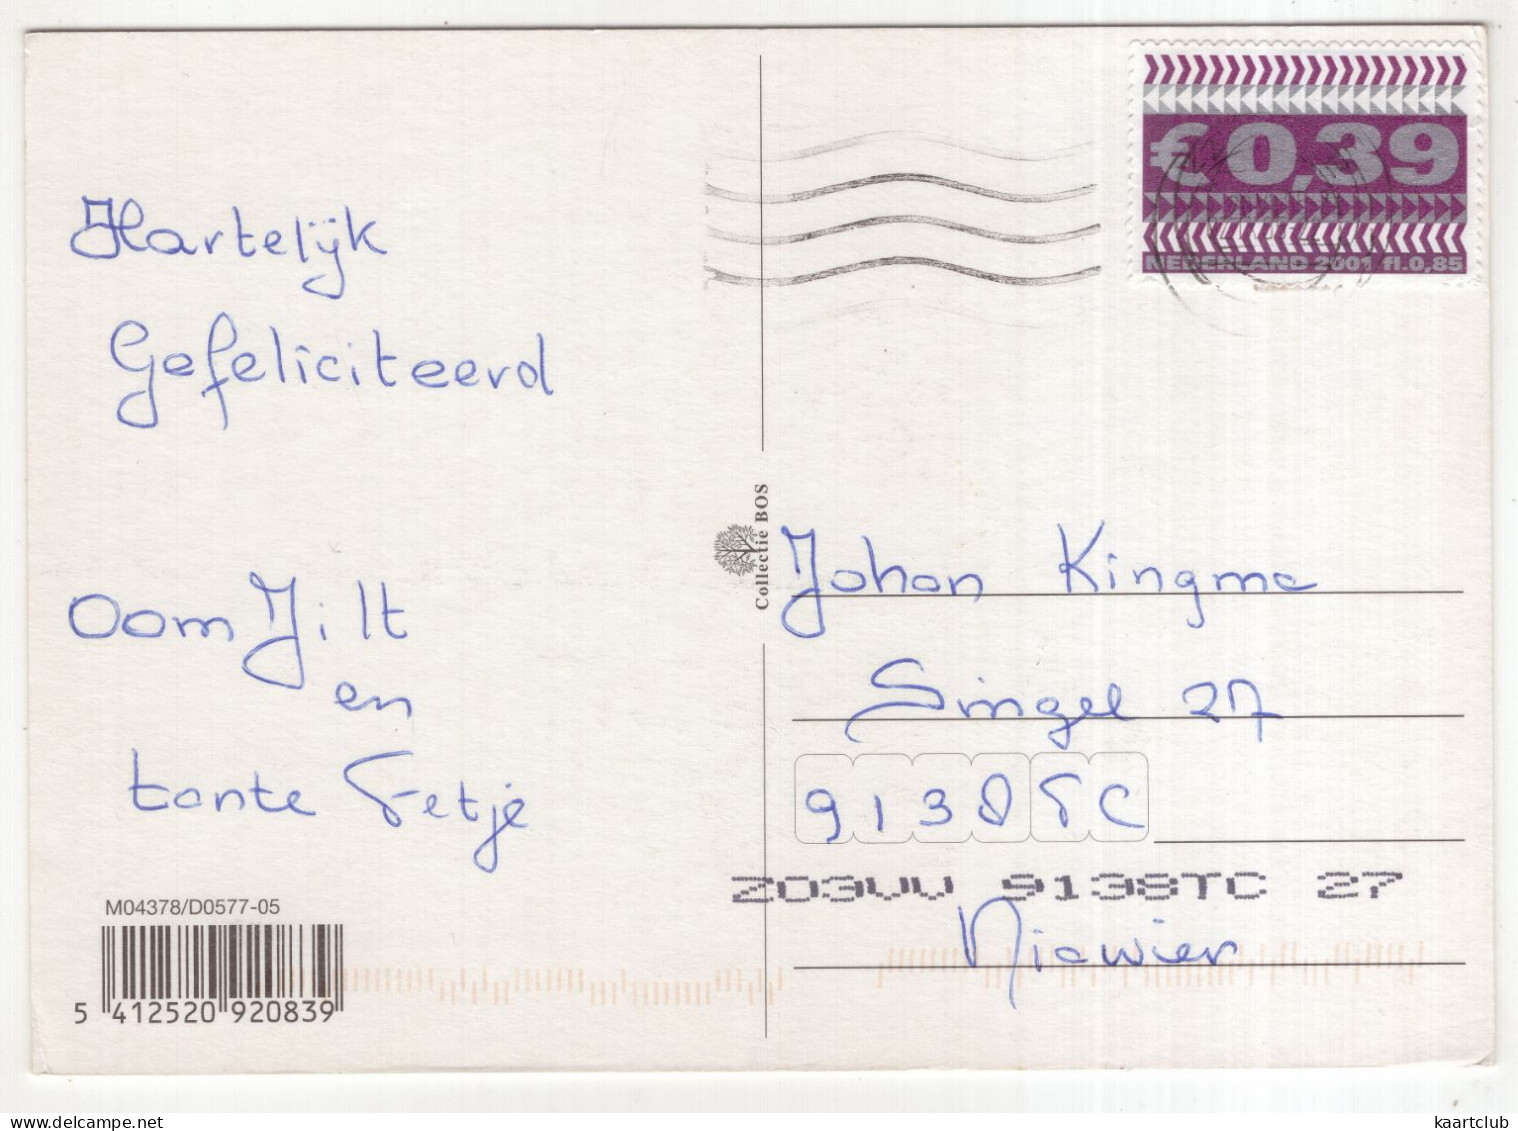 €0,39
NEDERLAND 2001 fl.0,85
Hartelijk
Gefeliciteerd
Oom Jilt
en
tante Fetje
M04378/D0577-05
5 412520 920839
Collectie BOS
Johan Kingma
Singel 27
9138 TC
Z03VV 9138TC 27
Niawier
www.delcampe.net
kaartclub